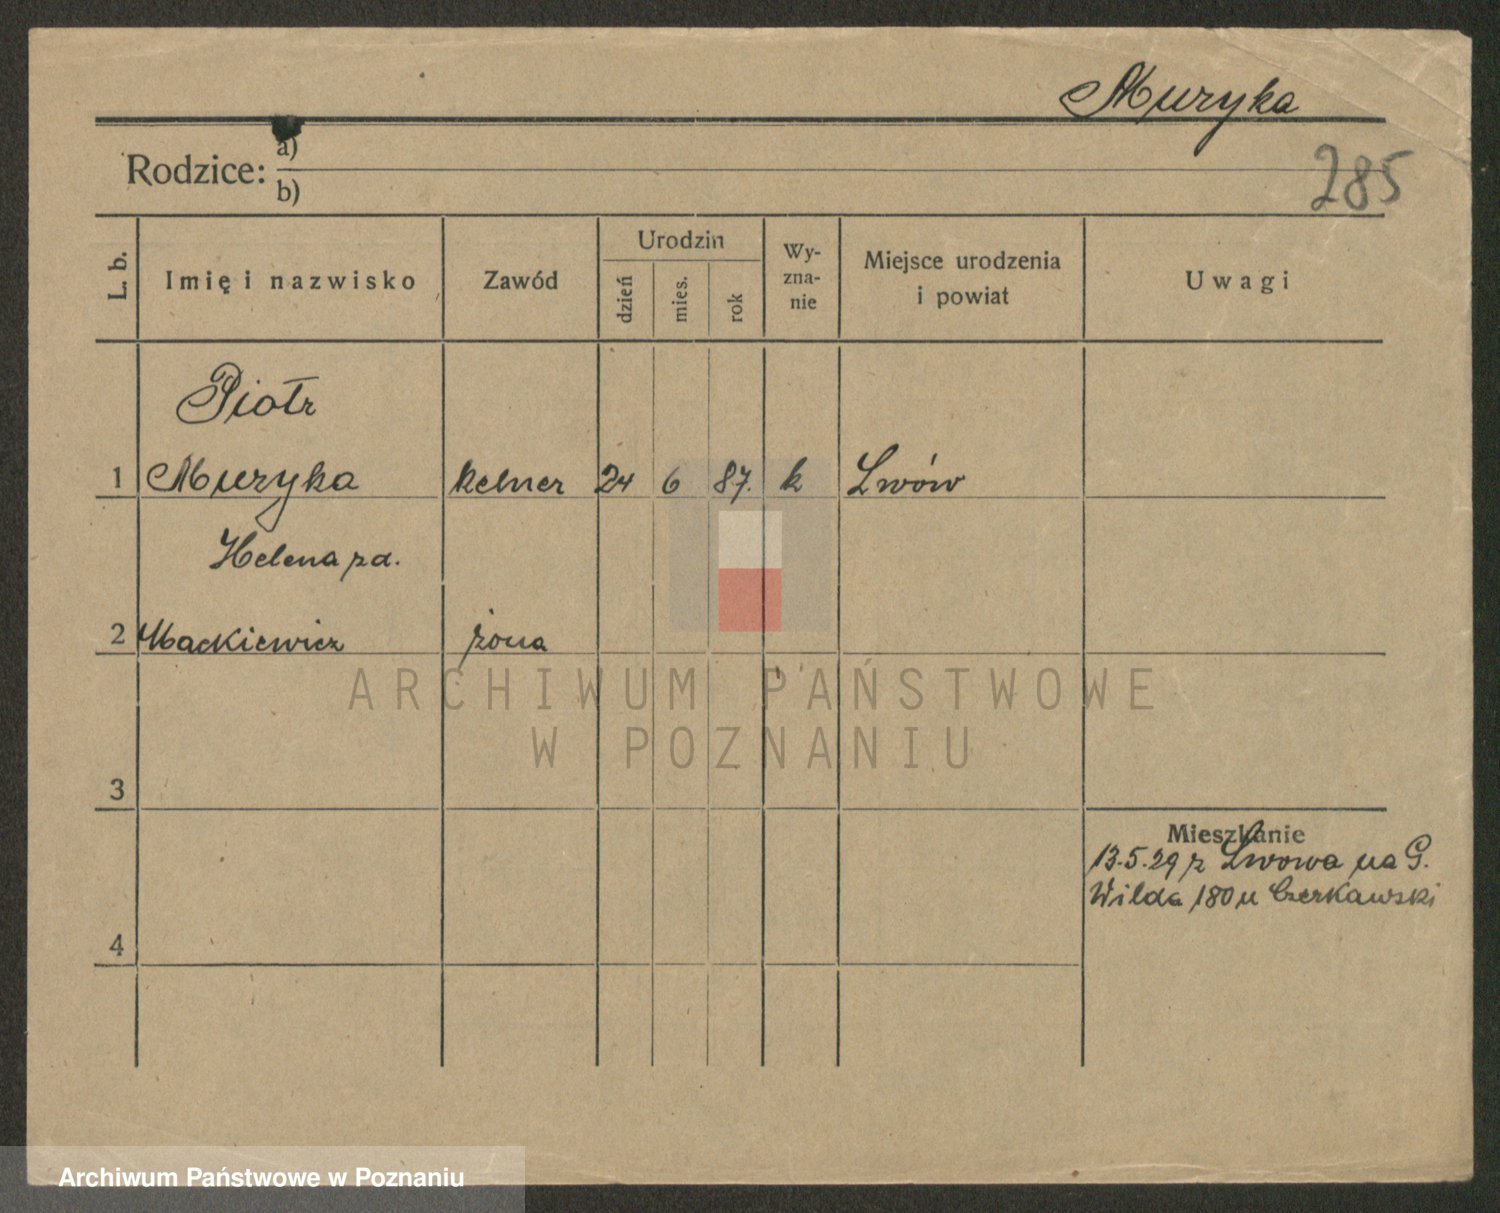 Muryka
285
Rodzice: a)
b)
L. b. Imię i nazwisko Zawód Urodzin dzień mies. rok Wy-zna-nie Miejsce urodzenia i powiat Uwagi
Piotr
1 Muryka kelner 24 6 87. k Lwów
Helena zd.
2 Mackiewicz żona
ARCHIWUM PAŃSTWOWE
W POZNANIU
3
Mieszkanie
13.5.29 z Lwowa na G.
Wilda 180 u Czerkawski
4
Archiwum Państwowe w Poznaniu